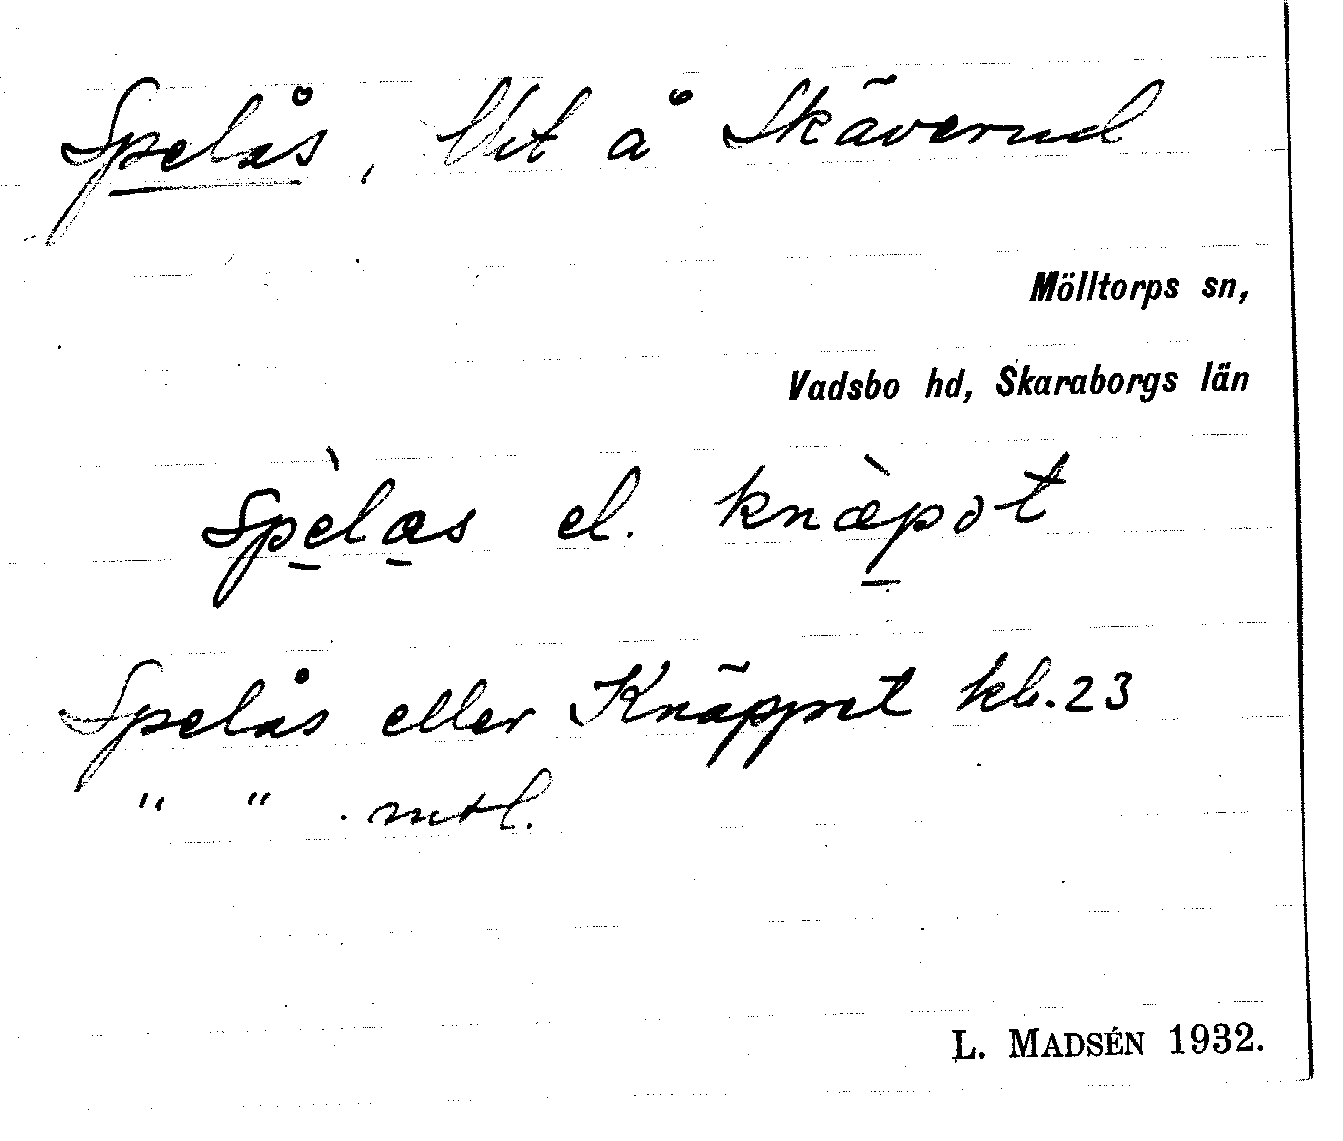 Spelås, Utt å Skäverud
Mölltorps sn,
Vadsbo hd, Skaraborgs län
spèlas el. knæ̀pət
Spelås eller Knäppet kb. 23
" " . mtl.
L. MADSÉN 1932.